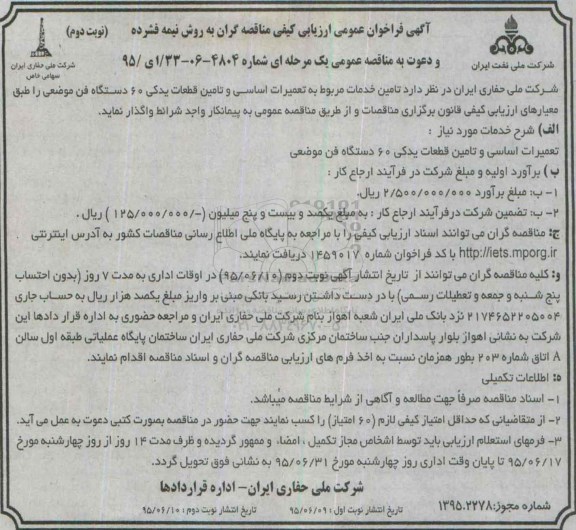 آگهی فراخوان عمومی ارزیابی کیفی مناقصه گران به روش نیمه فشرده (نوبت دوم)
و دعوت به مناقصه عمومی یک مرحله ای شماره ۴۸۰۴-۰۶-۳۳/ای/۹۵
شرکت ملی نفت ایران
شرکت ملی حفاری ایران
سهامی خاص
شرکت ملی حفاری ایران در نظر دارد تامین خدمات مربوط به تعمیرات اساسی و تامین قطعات یدکی ۶۰ دستگاه فن موضعی را طبق
معیارهای ارزیابی کیفی قانون برگزاری مناقصات و از طریق مناقصه عمومی به پیمانکار واجد شرایط واگذار نماید.
الف) شرح خدمات مورد نیاز :
تعمیرات اساسی و تامین قطعات یدکی ۶۰ دستگاه فن موضعی
ب) برآورد اولیه و مبلغ شرکت در فرآیند ارجاع کار :
۱- ب: مبلغ برآورد ۲/۵۰۰/۰۰۰/۰۰۰ ریال.
۲- ب: تضمین شرکت درفرآیند ارجاع کار : به مبلغ یکصد و بیست و پنج میلیون (-/۱۲۵/۰۰۰/۰۰۰) ریال .
ج: مناقصه گران می توانند اسناد ارزیابی کیفی را با مراجعه به پایگاه ملی اطلاع رسانی مناقصات کشور به آدرس اینترنتی
http://iets.mporg.ir با کد فراخوان شماره ۱۴۵۹۰۱۷ دریافت نمایند.
و: کلیه مناقصه گران می توانند از تاریخ انتشار آگهی نوبت دوم (۹۵/۰۶/۱۰) در اوقات اداری به مدت ۷ روز (بدون احتساب
پنج شنبه و جمعه و تعطیلات رسمی) با در دست داشتن رسید بانکی مبنی بر واریز مبلغ یکصد هزار ریال به حساب جاری
۲۱۷۴۶۵۲۲۰۵۰۰۴ نزد بانک ملی ایران شعبه اهواز بنام شرکت ملی حفاری ایران و مراجعه حضوری به اداره قرار دادها این
شرکت به نشانی اهواز بلوار پاسداران جنب ساختمان مرکزی شرکت ملی حفاری ایران ساختمان پایگاه عملیاتی طبقه اول سالن
A اتاق شماره ۲۰۳ بطور همزمان نسبت به اخذ فرم های ارزیابی مناقصه گران و اسناد مناقصه اقدام نمایند.
ه: اطلاعات تکمیلی
۱- اسناد مناقصه صرفاً جهت مطالعه و آگاهی از شرایط مناقصه میباشد.
۲- از متقاضیانی که حداقل امتیاز کیفی لازم (۶۰ امتیاز) را کسب نمایند جهت حضور در مناقصه بصورت کتبی دعوت به عمل می آید.
۳- فرمهای استعلام ارزیابی باید توسط اشخاص مجاز تکمیل ، امضاء و ممهور گردیده و ظرف مدت ۱۴ روز از روز چهارشنبه مورخ
۹۵/۰۶/۱۷ تا پایان وقت اداری روز چهارشنبه مورخ ۹۵/۰۶/۳۱ به نشانی فوق تحویل گردد.
شرکت ملی حفاری ایران- اداره قراردادها
شماره مجوز: ۱۳۹۵.۲۲۷۸ تاریخ انتشار نوبت اول : ۹۵/۰۶/۰۹ تاریخ انتشار نوبت دوم : ۹۵/۰۶/۱۰